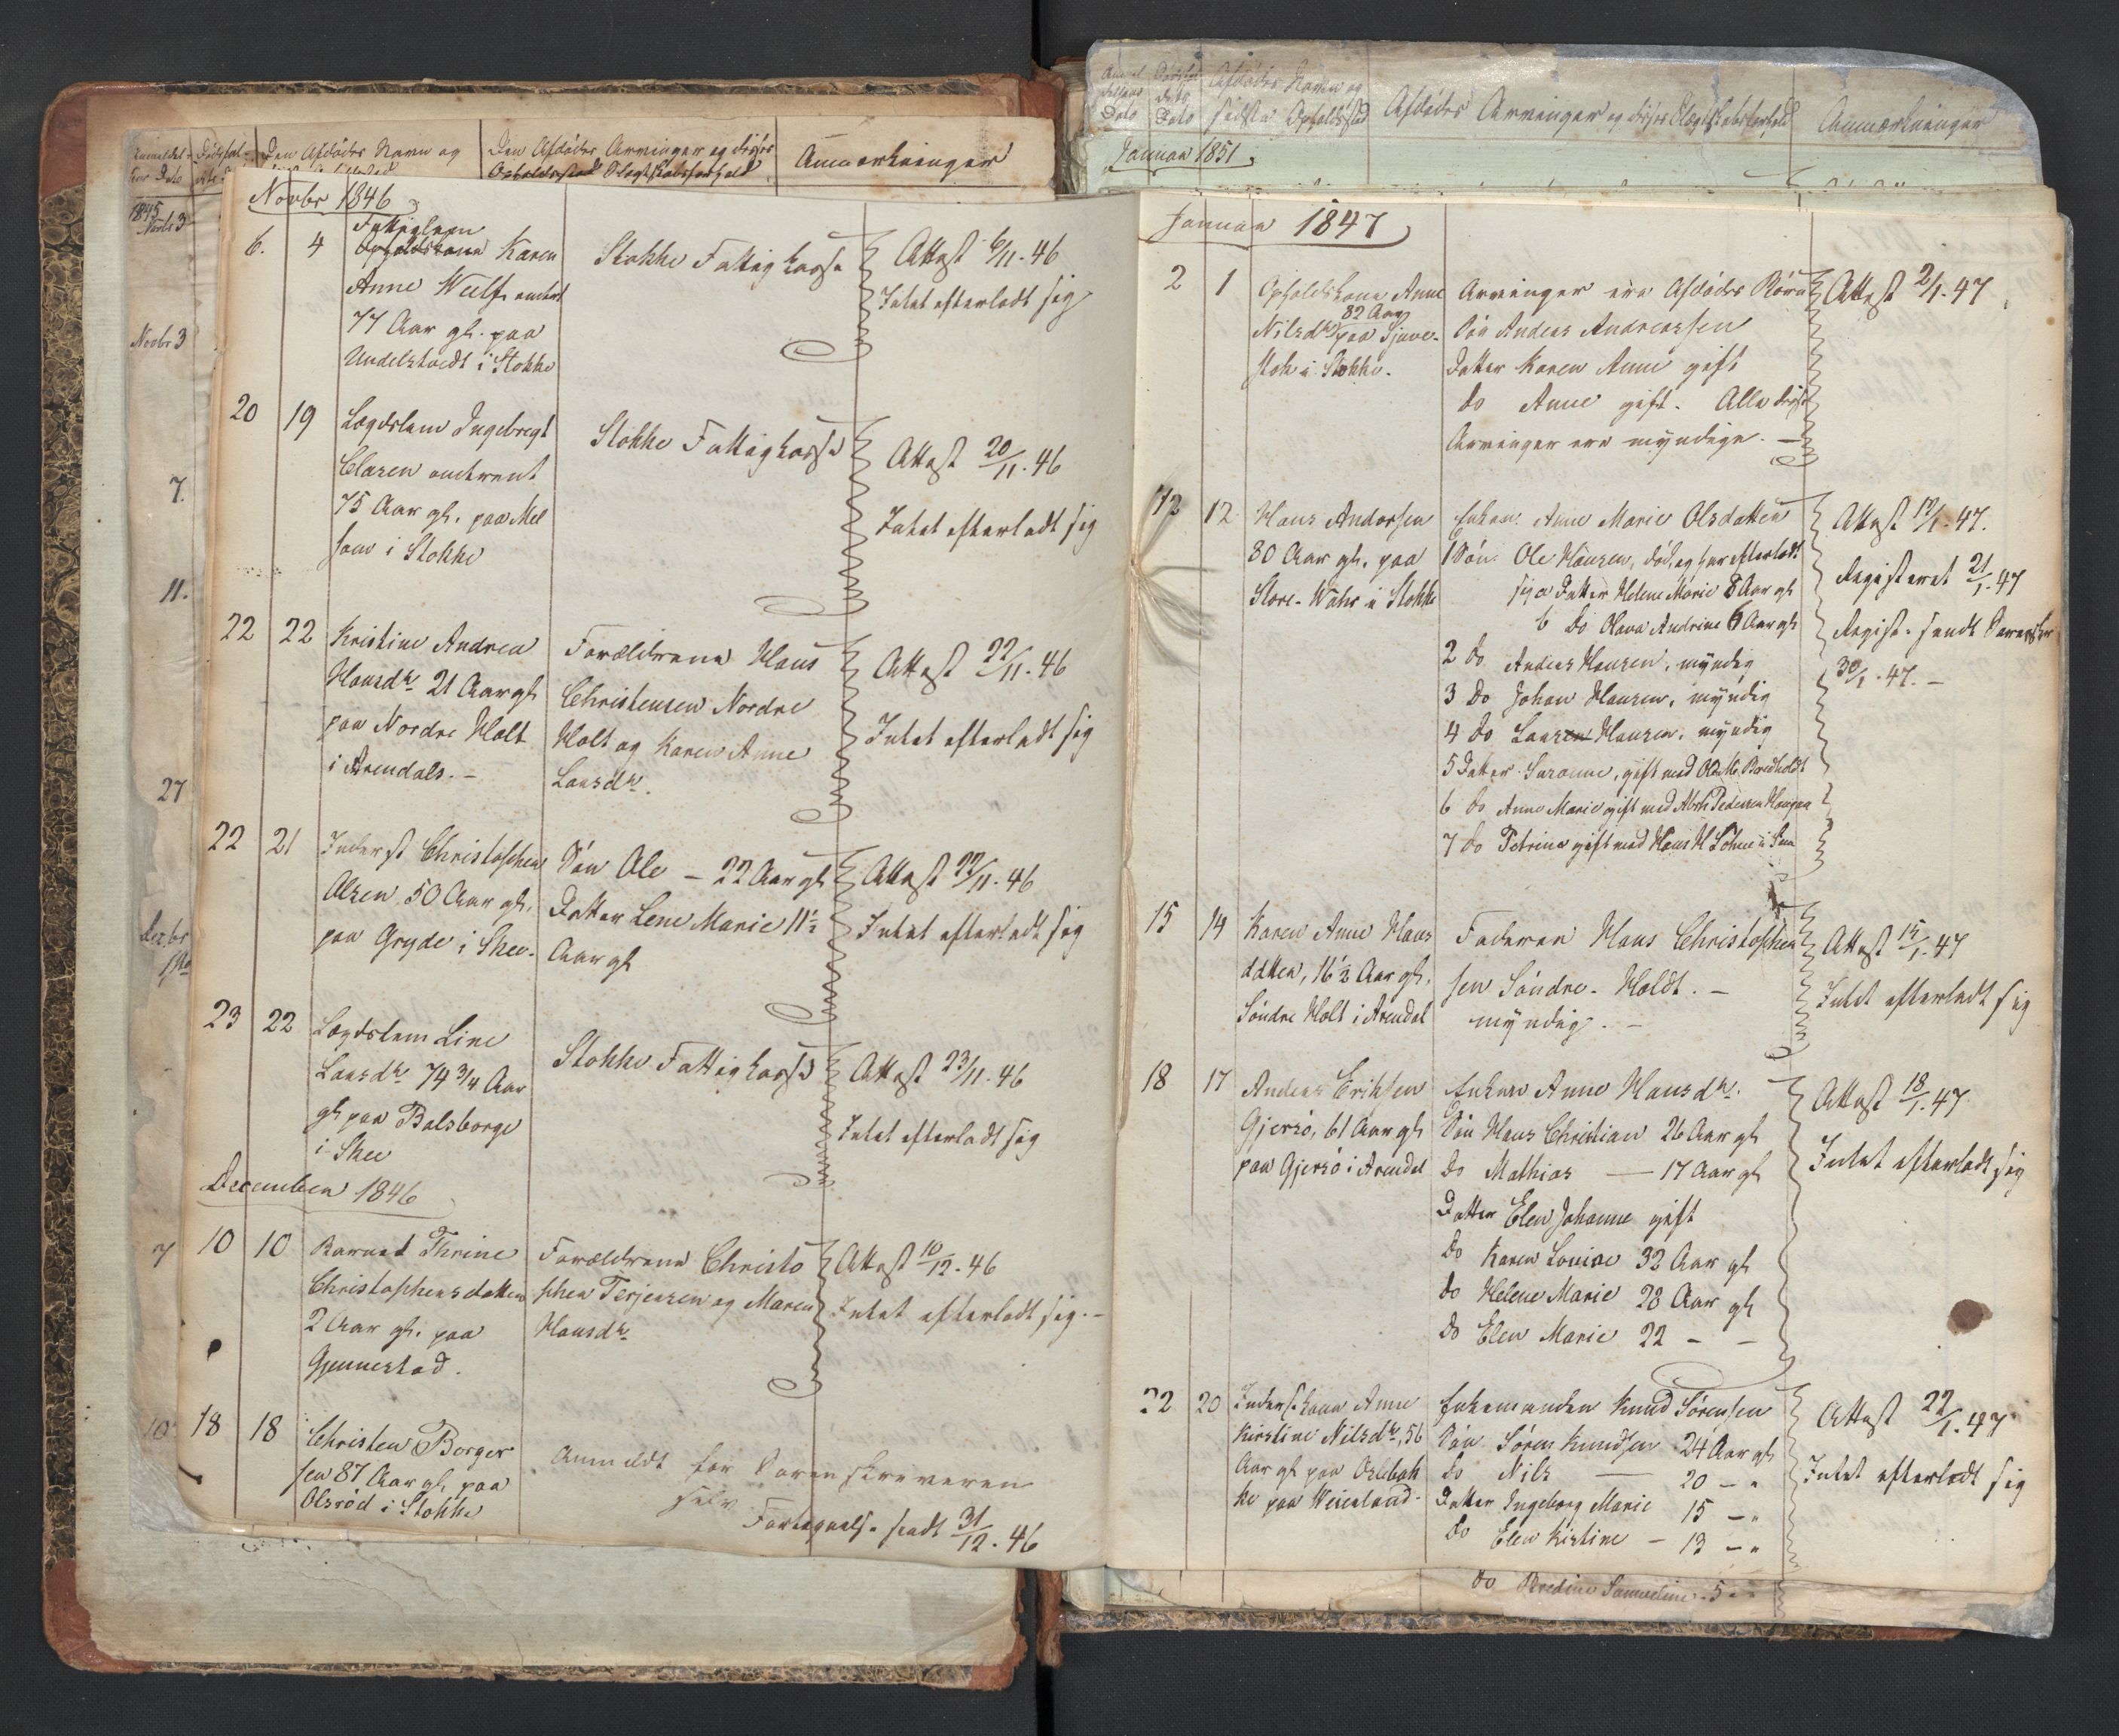 Anmeldel-
sens Dato
Dødsfal-
dets
Den Afdødes Navn og
Den Afdødes Arvinger og disses
Opholdssted Slægtskabsforhold
Anmærkninger
1845
Novbr 3
Novbr 3
7.
11.
27
Decbr
7
10
Novbr 1846
6.
4
Fattiglem
Opholdskone Karen
Anne Wulf, omtrent
77 Aar gl. paa
Undelstvedt i Stokke
Stokke Fattigkasse
Attest 6/11. 46
Intet efterladt sig
20
19
Lægdslem Ingebregt
Clasen omtrent
75 Aar gl. paa Mel
som i Stokke
Stokke Fattigkasse
Attest 20/11. 46
Intet efterladt sig
22
22
Kristine Andrea
Hansdtr 21 Aar gl
paa Nordre Holt
i Arendals. –
Forældrene Hans
Christensen Nordre
Holt og Karen Anne
Larsdtr.
Attest 22/11. 46
Intet efterladt sig
22
21
Inderst Christopher
Olsen, 50 Aar gl.
paa Gryde i Skee.
Søn Ole – 22 Aar gl
Datter Lene Marie 11½
Aar gl
Attest 22/11. 46
Intet efterladt sig
23
22
Lægdslem Line
Larsdtr 74 3/4 Aar
gl paa Bolsborge
i Skee
Stokke Fattigkasse
Attest 23/11. 46
Intet efterladt sig
December 1846
10
10
Barnet Thrine
Christophersdatter
2 Aar gl. paa
Gjennestad.
Forældrene Christo
pher Terjesen og Maren
Hansdtr.
Attest 10/12. 46
Intet efterladt sig. –
18
18
Christen Borger
sen 87 Aar gl. paa
Olsrød i Stokke
Anmeldt for Sorenskriveren
selv
Fortegnelse sendt 31/12. 46
Anmel
delsens
Dato
Dødsfal
dets
Dato
Afdødes Navn og
sidste Opholdssted
Afdødes Arvinger og disses Slægtskabsforhold
Anmærkninger
Januar 1851
Januar 1847
2
1
Opholdskone Anne
82 Aar
Nilsdtr paa Sjuve-
stok i Stokke.
Arvinger ere Afdødes Børn
Søn Anders Andreassen
Datter Karen Anne gift
do Anne gift. Alle disse
Arvinger ere myndige. –
Attest 2/1. 47
12
12
Hans Andersen
80 Aar gl. paa
Store-Wahr i Stokke
Enken Anne Marie Olsdatter
1 Søn Ole Hansen, død, og har efterladt
sig a Datter Helene Marie 8 Aar gl
b do Olava Andrine 6 Aar gl
2 do Anders Hansen, myndig
3 do Johan Hansen, myndig
4 do Lars Hansen, myndig
5 Datter Susanne, gift med Ole Ms Bredholdt
6 do Anne Marie gift med Abrh Pedersen Haugan
7 do Petrine gift med Hans H Lohne i Sem
Attest 12/1. 47.
Registeret 21/1. 47
Regist. sendt Sorenskr
30/1. 47. –
15
14
Karen Anne Hans
datter, 16½ Aar gl.
Søndre Holt i Arendal
Faderen Hans Christopher
sen Søndre-Holdt. –
myndig. –
Attest 15/1. 47
Intet efterladt sig
18
17
Anders Eriksen
Gjersø, 61 Aar gl
paa Gjersø i Arendal
Enken Anne Hansdtr.
Søn Hans Christian 26 Aar gl
do Mathias — 17 Aar gl
Datter Elen Johanne gift
do Karen Lovise 32 Aar gl
do Helene Marie 28 Aar gl
do Elen Marie 22 – –
Attest 18/1. 47
Intet efterladt sig
22
20
Inderstkone Anne
Kirstine Nilsdtr, 56
Aar gl paa Oslebak
ke paa Weierland.
Enkemanden Knud Sørensen
Søn Søren Knudsen 24 Aar gl
do Nils — 20 – "
Datter Ingeborg Marie 15 – "
do Elen Kistine – 13 – "
do Bredine Samueline. 5 – "
Attest 22/1. 47
Intet efterladt sig